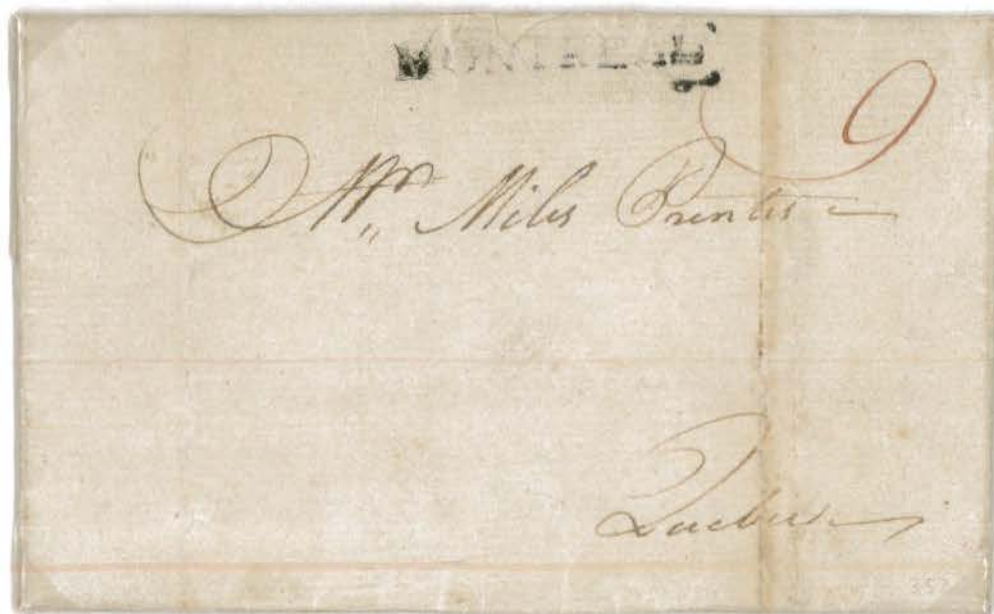 MONTREAL
9
Mr. Miles Prentis
Quebec
357